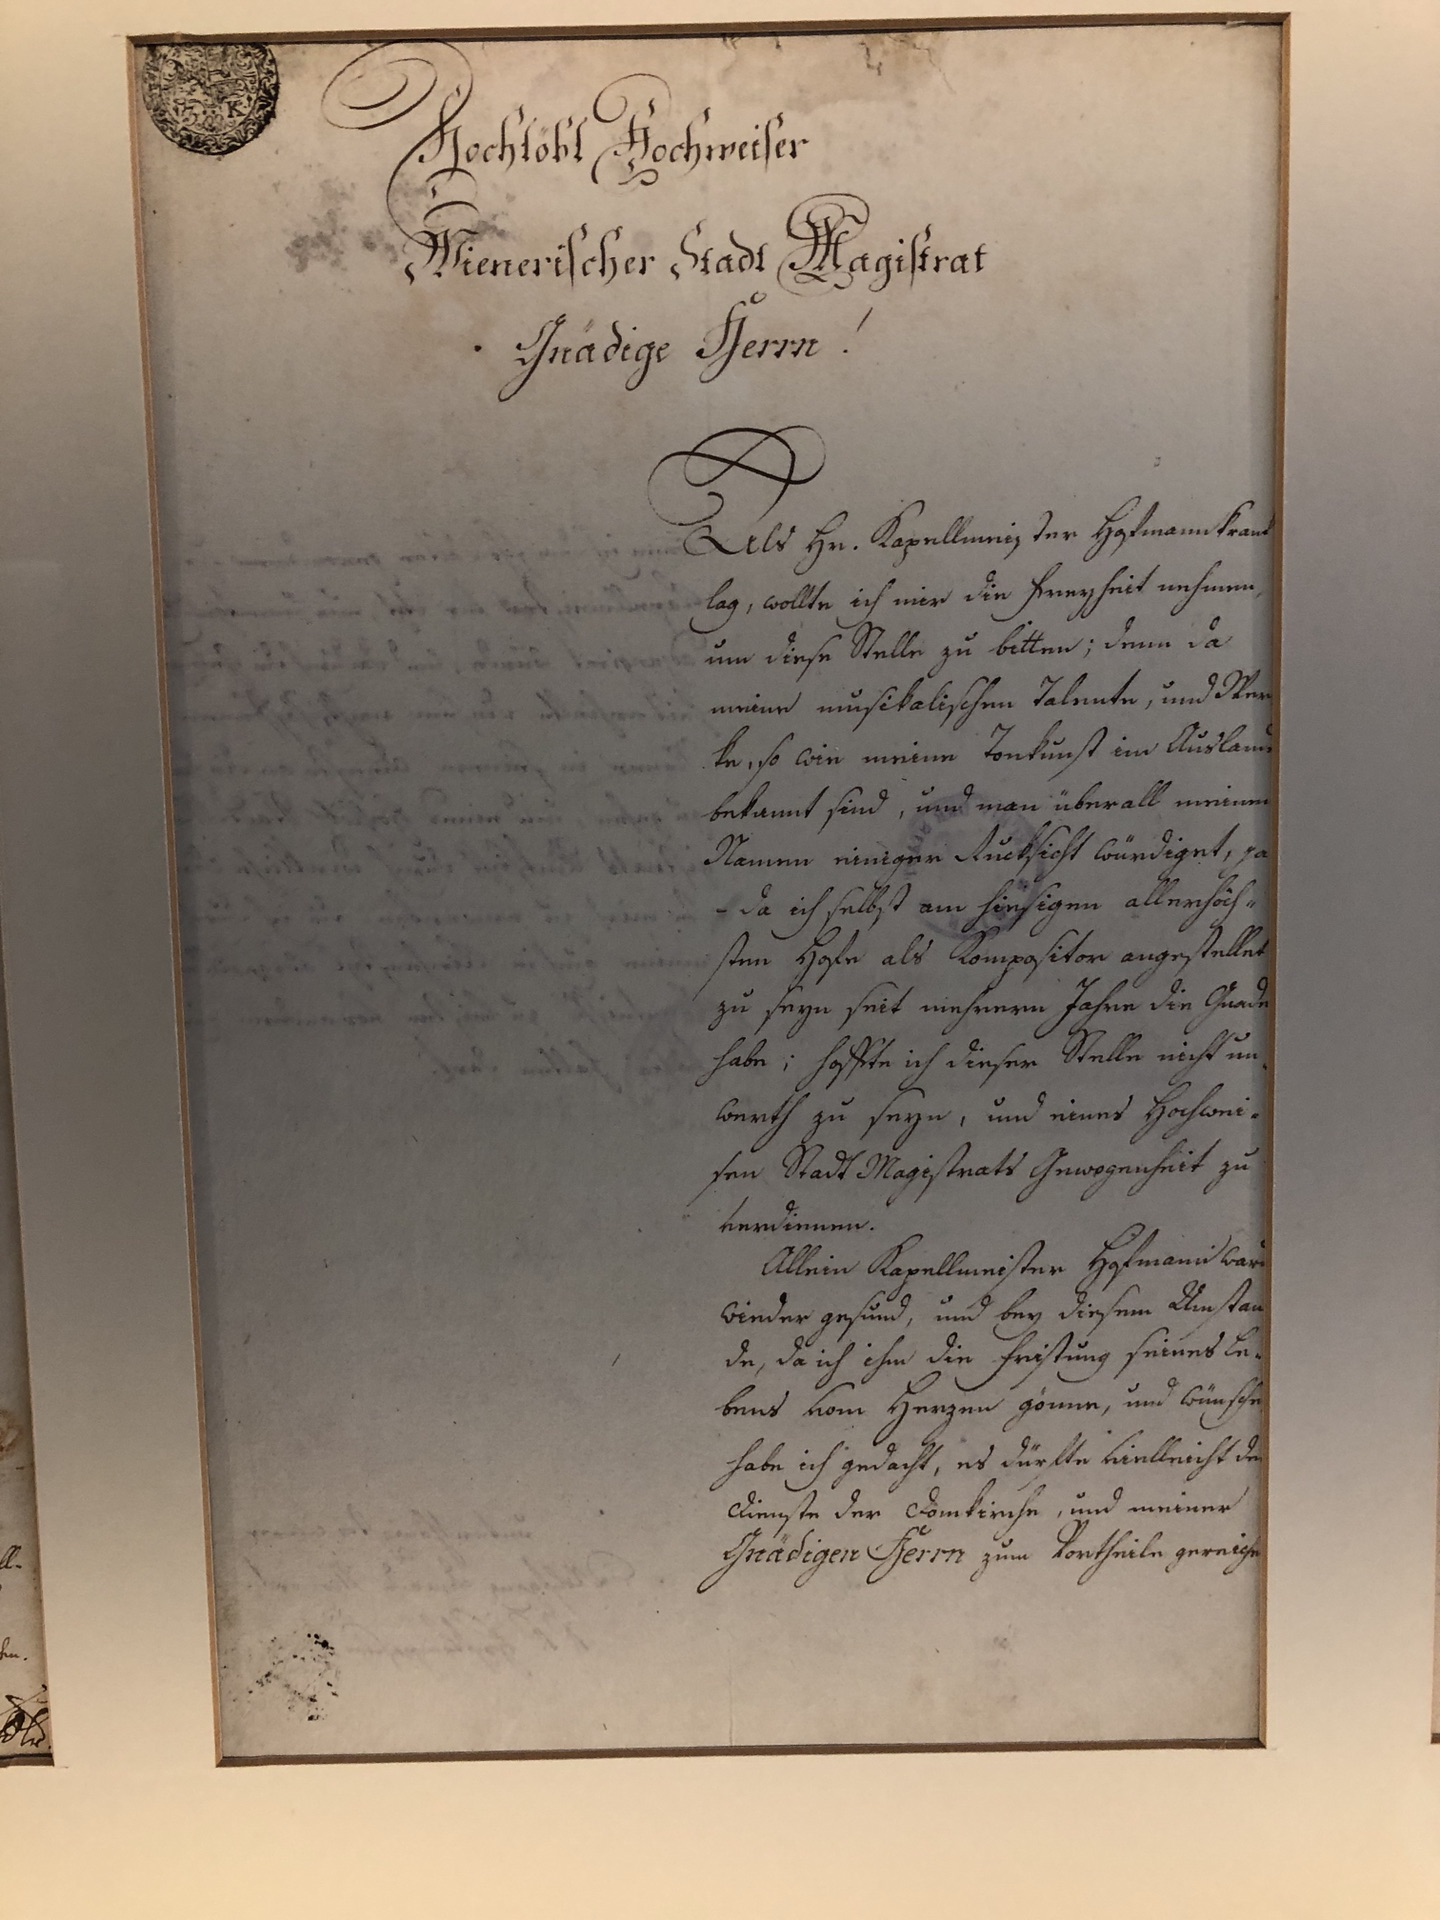 Hochlöbl Hochweiser
Wienerischer Stadt Magistrat
Gnädige Herrn!
Als Hr. Kapellmeister Hofmann krank
lag, wollte ich mir die Freyheit nehmen,
um diese Stelle zu bitten; denn da
meine musikalischen Talente, und Wer
ke, so wie meine Tonkunst im Auslande
bekannt sind, und man überall meinen
Namen einiger Rucksicht würdiget, ja
- da ich selbst am hiesigen allerhöch=
sten Hofe als Kompositor angestellet
zu seyn seit mehrern Jahre die Gnade
habe; hoffte ich dieser Stelle nicht un=
werth zu seyn, und eines Hochwei=
sen Stadt Magistrats Gewogenheit zu
verdienen.
Allein Kapellmeister Hofmann ward
wieder gesund, und bey diesem Umstan
de, da ich ihm die Fristung seines Le=
bens vom Herzen gönne, und wünsche
habe ich gedacht, es dürfte vielleicht dem
Dienste der Domkirche, und meiner
Gnädigen Herrn zum Vortheile gereiche